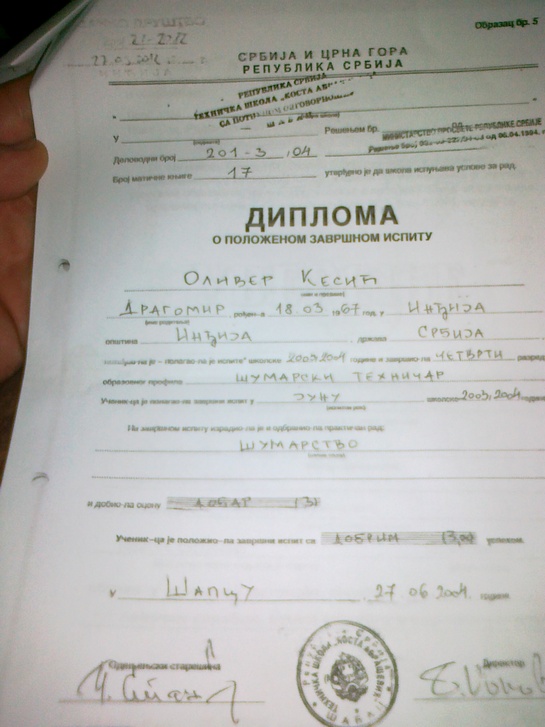 Образац бр. 5
21-2012
27.03.2012
СРБИЈА И ЦРНА ГОРА
РЕПУБЛИКА СРБИЈА
РЕПУБЛИКА СРБИЈА
ТЕХНИЧКА ШКОЛА „КОСТА
У
Решењем бр.
МИНИСТАРСТВО ПРОСВЕТЕ РЕПУБЛИКЕ СРБИЈЕ
Деловодни број 201-3 , 04
Број матичне књиге 17 утврђено је да школа испуњава услове за рад.
ДИПЛОМА
О ПОЛОЖЕНОМ ЗАВРШНОМ ИСПИТУ
ОЛИВЕР КЕСИЋ
(име и презиме)
ДРАГОМИР рођен-а 18 03 1967 год. у ИНЂИЈА
(име родитеља)
општина ИНЂИЈА држава СРБИЈА
школске 2003/2004 године и завршио-ла ЧЕТВРТИ разред
образовног профила ШУМАРСКИ ТЕХНИЧАР
Ученик-ца је полагао-ла завршни испит у ЈУНУ школске 2003/2004 године
На завршном испиту израдио-ла је и одбранио-ла практичан рад:
ШУМАРСТВО
и добио-ла оцену ДОБАР (3)
Ученик-ца је положио-ла завршни испит са ДОБРИМ (3,00) успехом.
У ШАПЦУ , 27 06 2004. године
Одељењски старешина
Директор